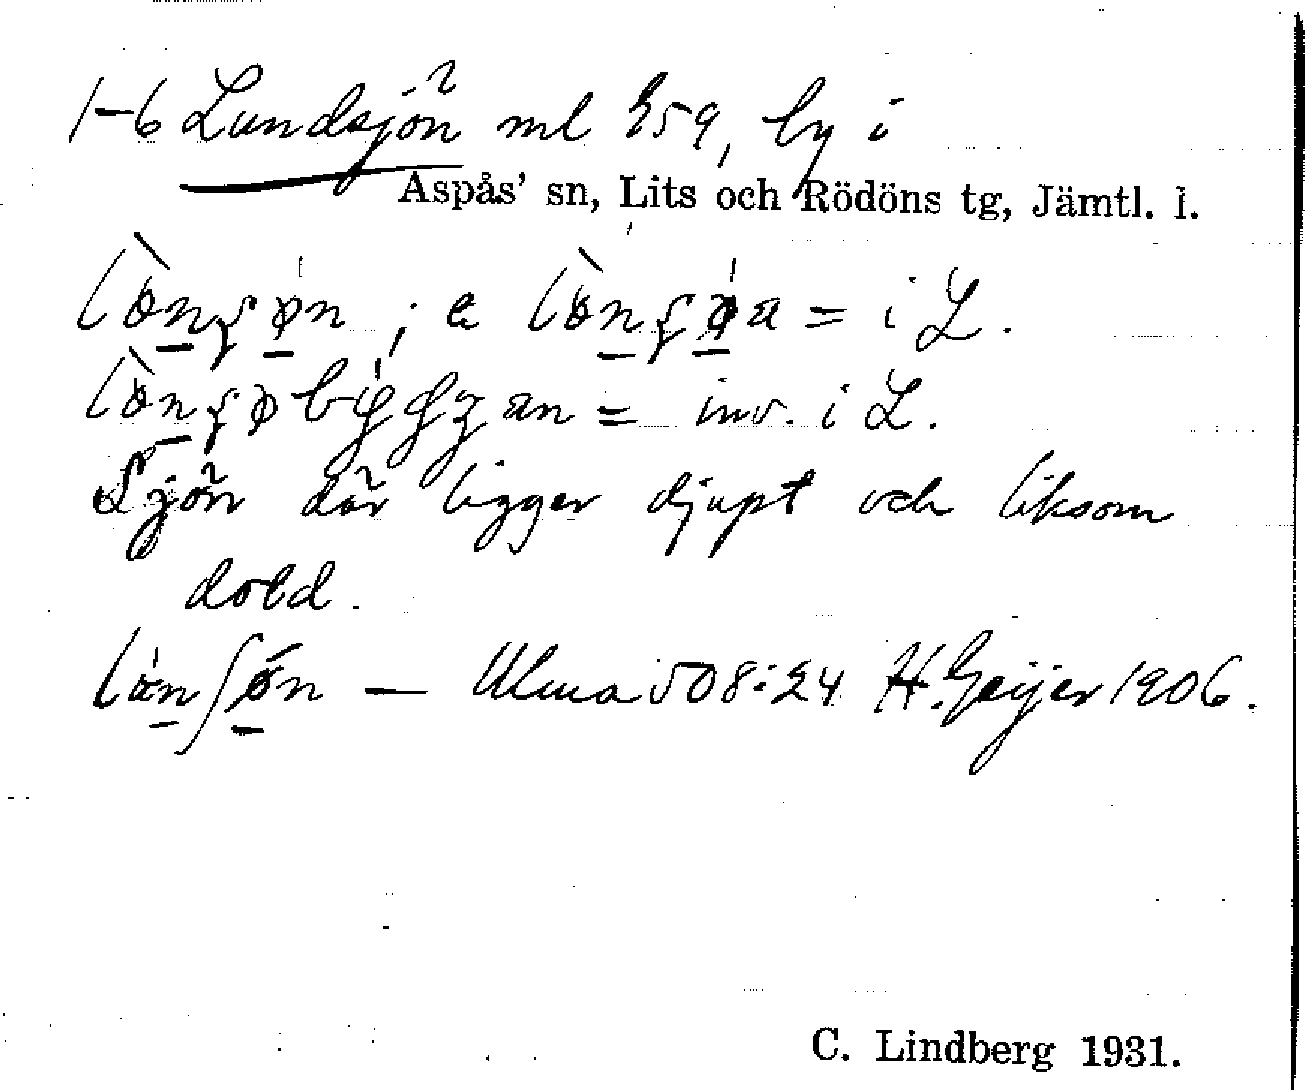 1-6 Lundsjön ml 859, by i
Aspås' sn, Lits och Rödöns tg, Jämtl. l.
; a = i L.
= inv. i L.
Sjön där ligger djupt och liksom
dold.
— Ulma 508:24 H. Geijer 1906.
C. Lindberg 1931.